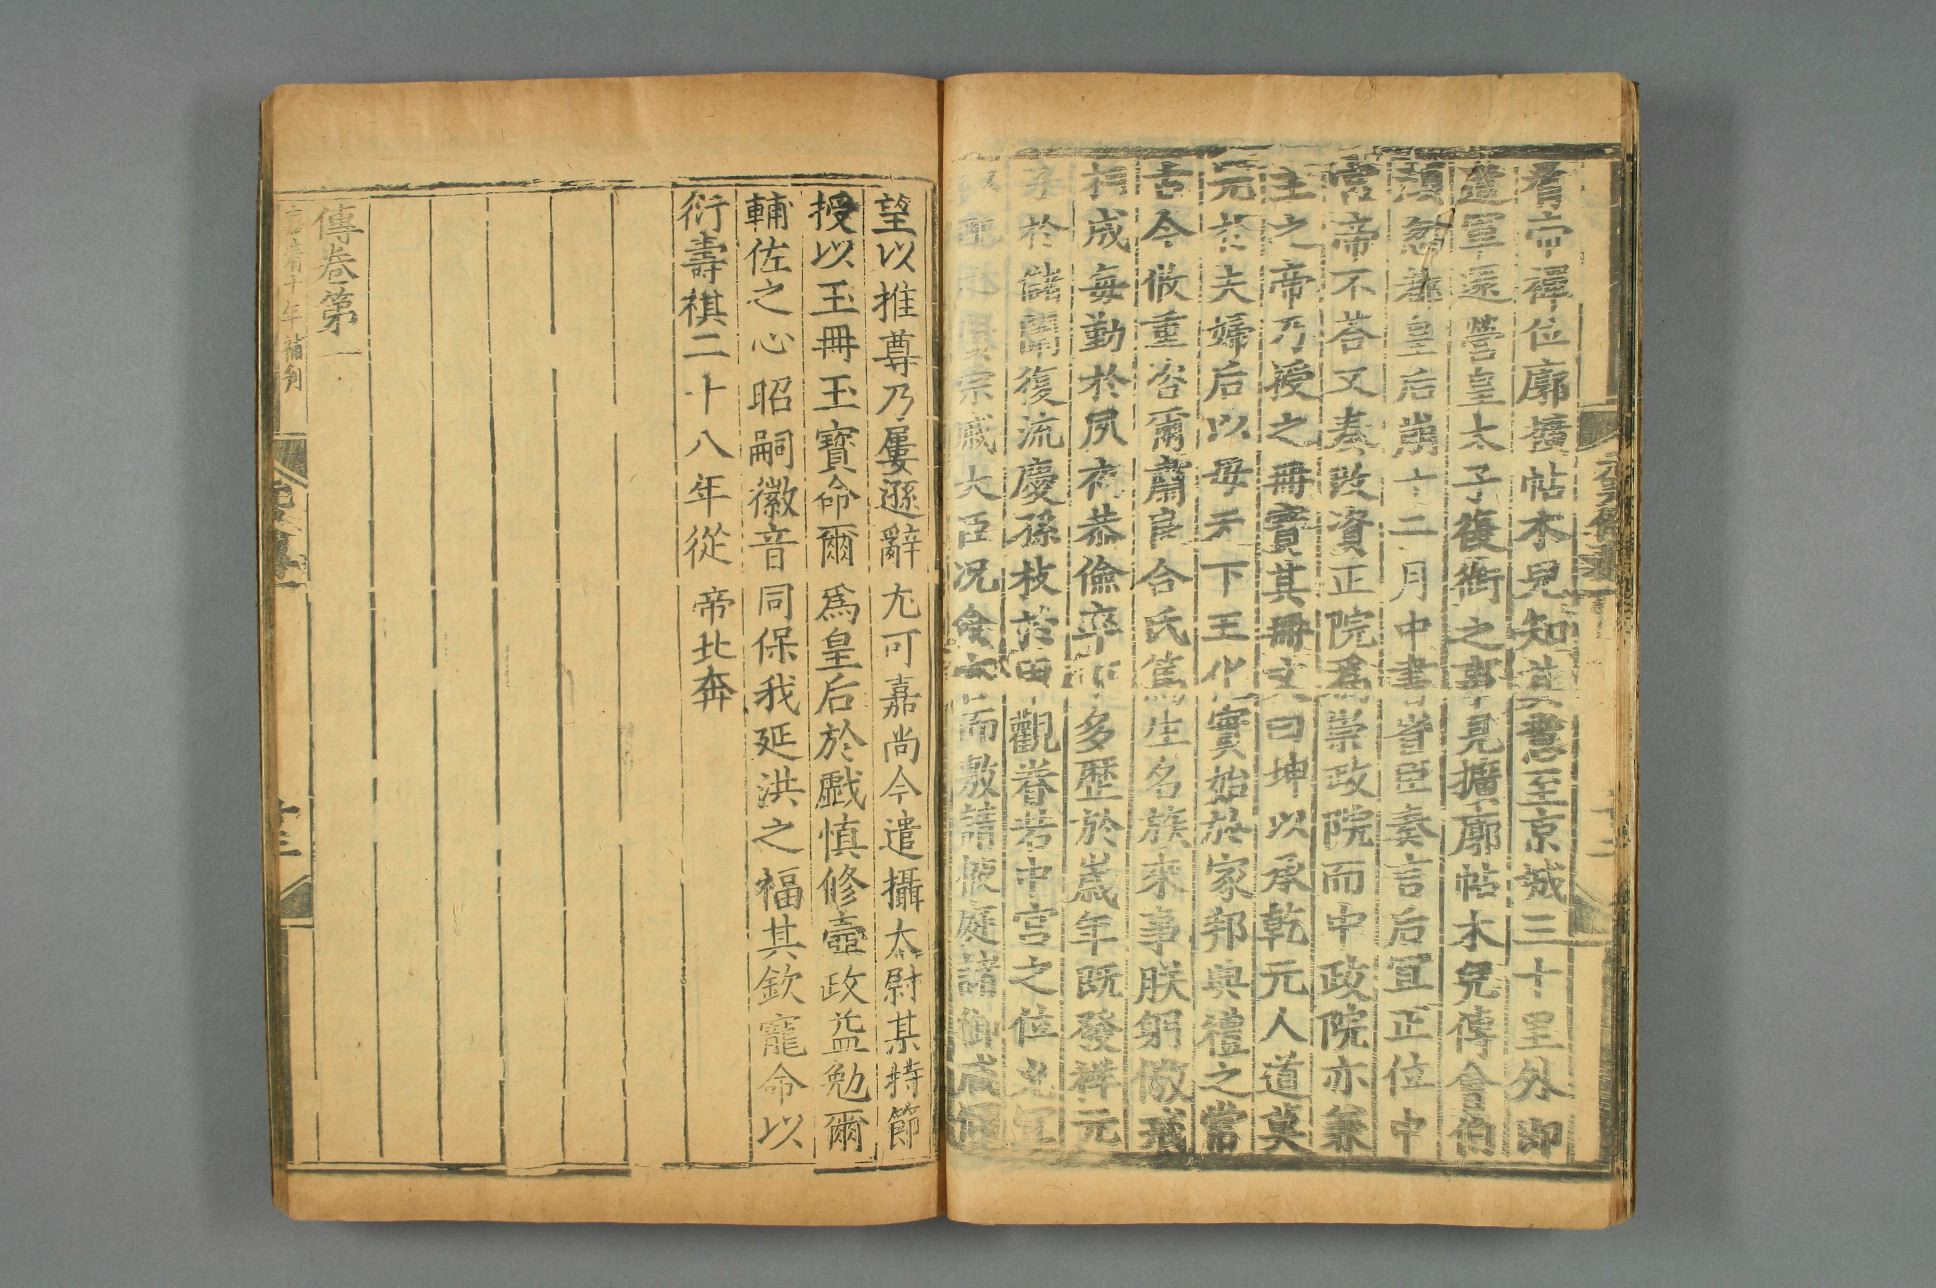 脅帝禪位廓擴帖木兒知其意至京城三十里外即
遣軍還營皇太子復銜之事見擴廓帖木兒傳會伯
顏忽都皇后崩十二月中書省臣奏言后宜正位中
宮帝不答又奏改資正院爲崇政院而中政院亦兼
主之帝乃授之冊寶其冊文曰坤以承乾元人道莫
先於夫婦后以母天下王化實始於家邦典禮之常
古今攸重咨爾肅良合氏篤生名族來事朕躬儆戒
相成每勤於夙夜恭儉率下多歷於歲年既發祥元
於儲闈復流慶孫枝於甲觀眷若中宮之位允宜
宗戚大臣況僉言而敷請掖庭諸御咸
望以推尊乃屢遜辭尤可嘉尚今遣攝太尉某持節
授以玉冊玉寶命爾爲皇后於戲慎修壼政益勉爾
輔佐之心昭嗣徽音同保我延洪之福其欽寵命以
衍壽祺二十八年從帝北奔
傳卷第一
嘉靖十年補刊
十三